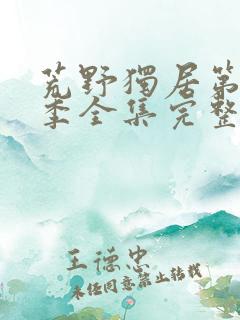 荒野獨居第
季全集完整
王德忠
未经同意禁止转载